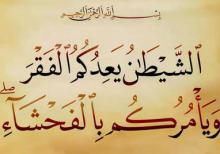 بِسْمِ اللَّهِ الرَّحْمَٰنِ الرَّحِيمِ
الشَّيْطَانُ يَعِدُكُمُ الْفَقْرَ
وَيَأْمُرُكُم بِالْفَحْشَاءِ ۖ